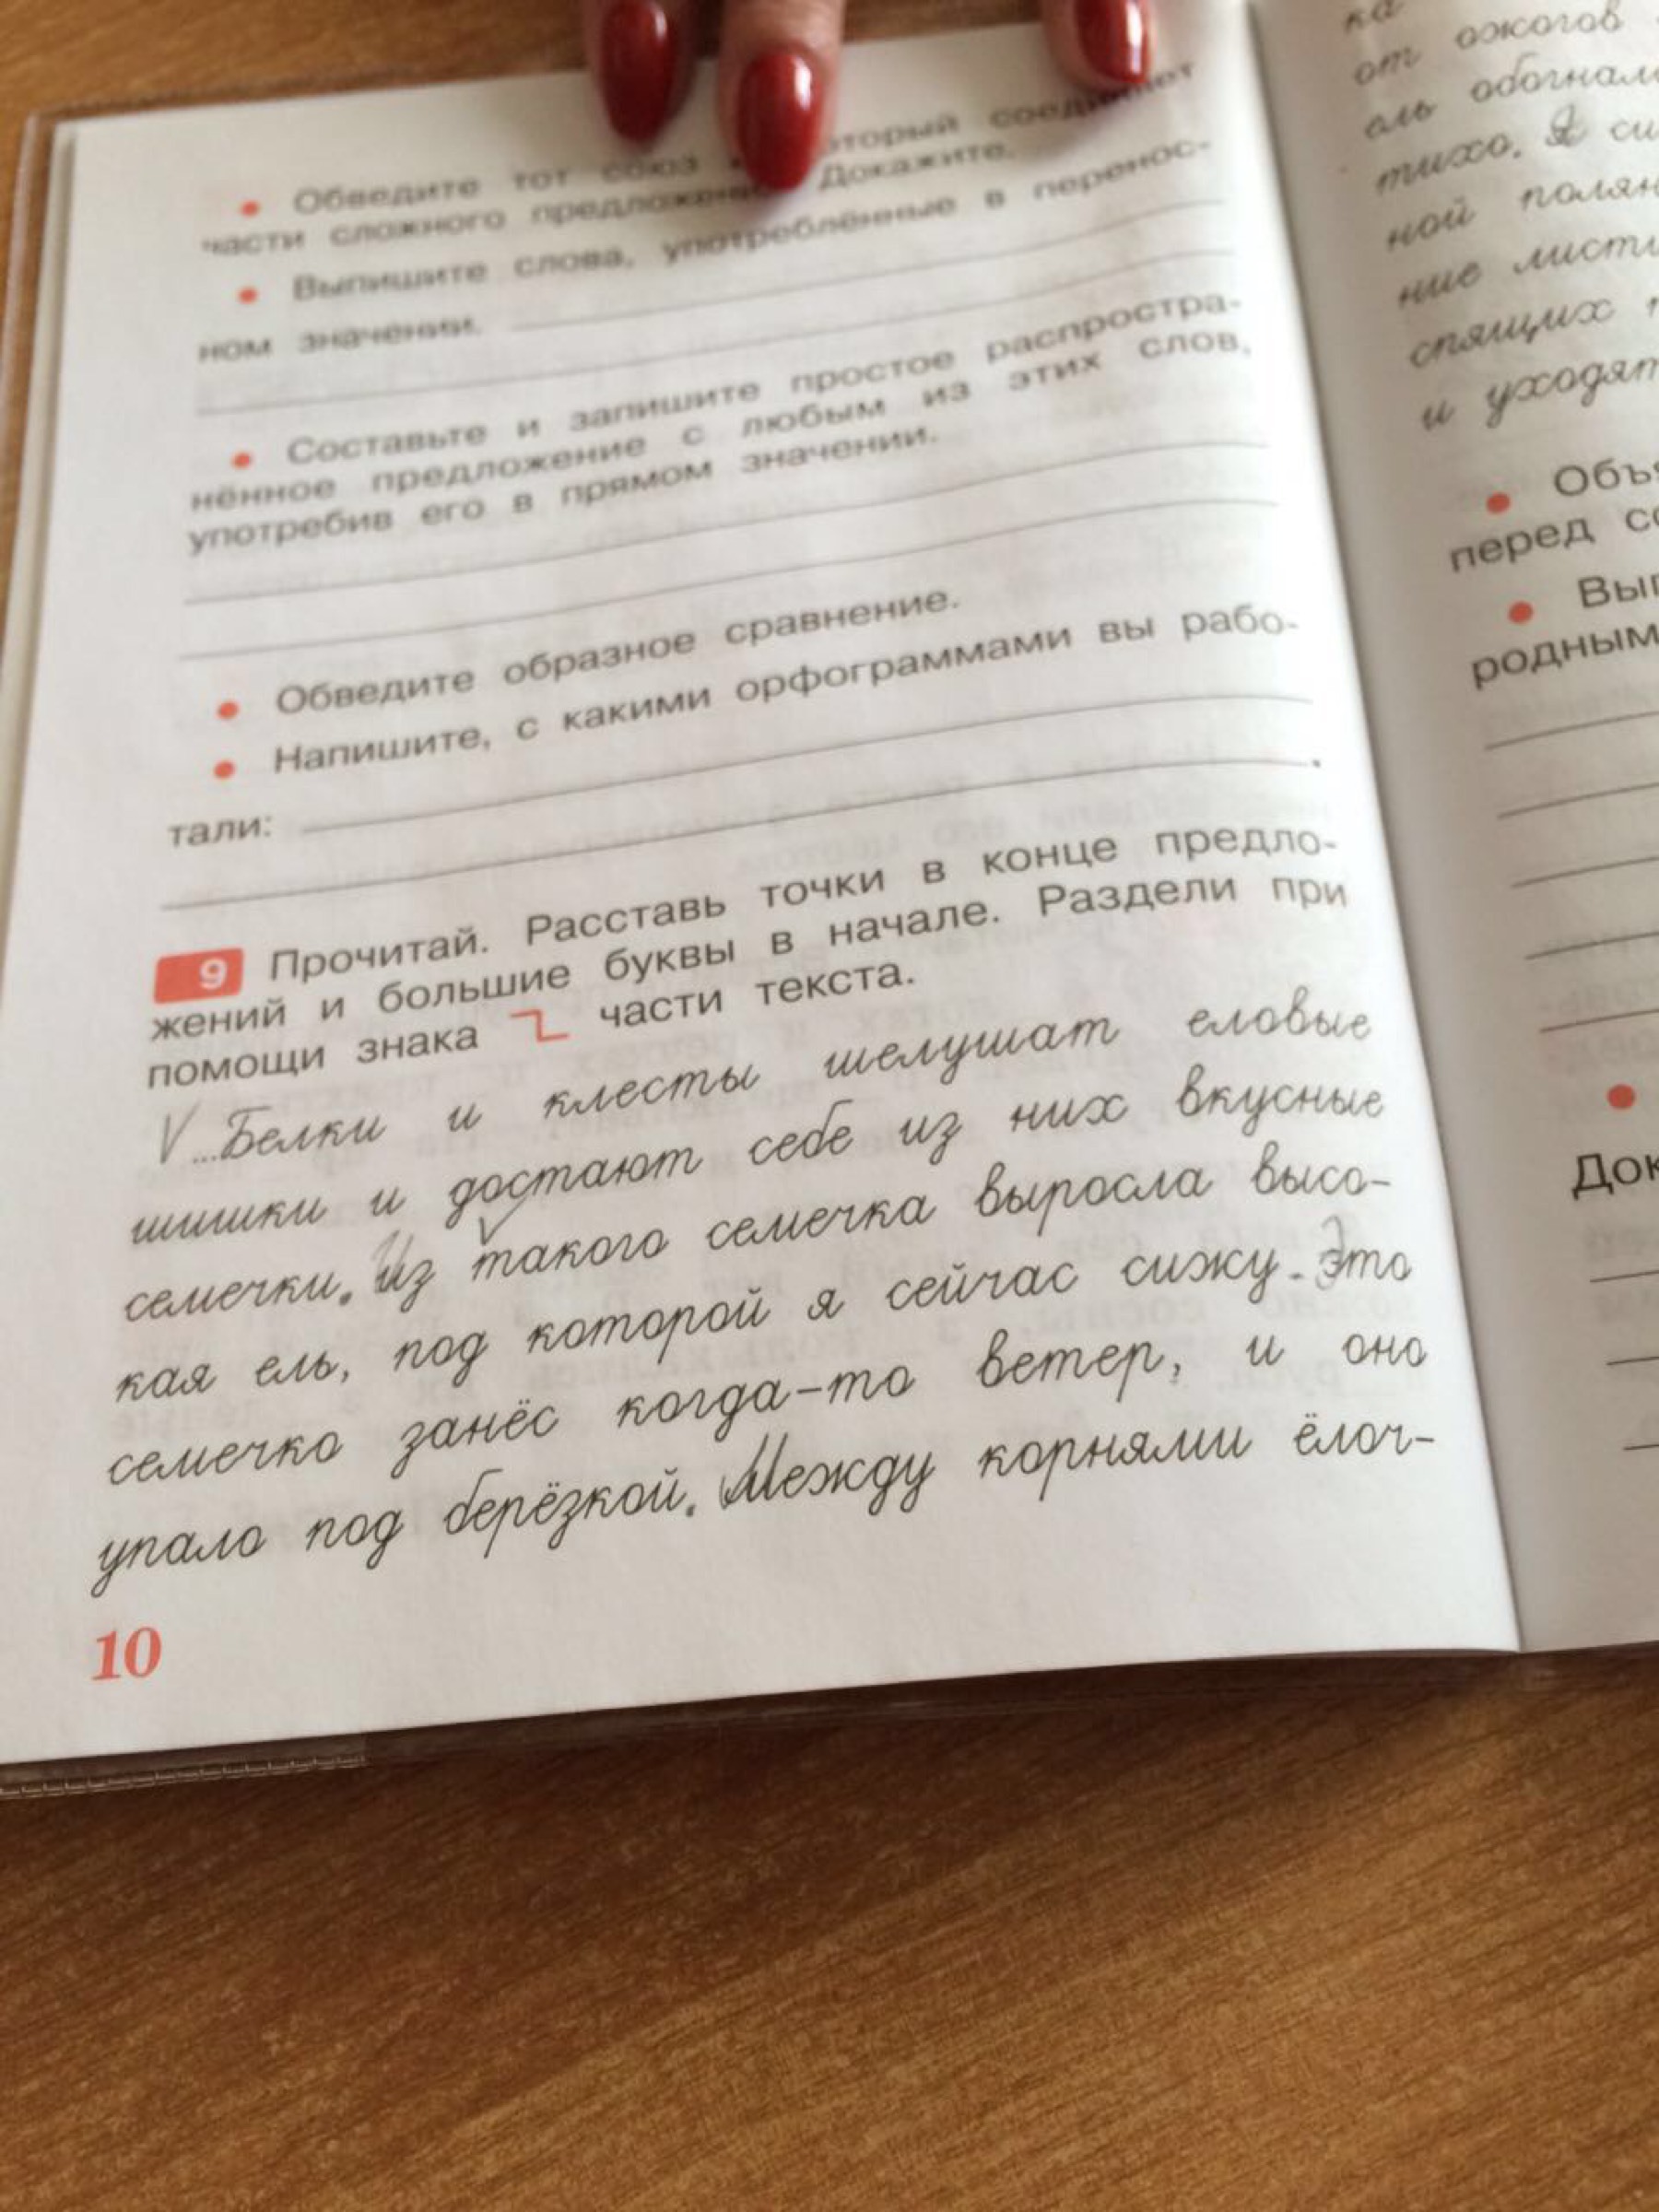 • Обведите тот союз оторый соединяет
части сложного предложения. Докажите.
• Выпишите слова, употреблённые в перенос-
ном значении.
• Составьте и запишите простое распростра-
нённое предложение с любым из этих слов,
употребив его в прямом значении.
• Обведите образное сравнение.
• Напишите, с какими орфограммами вы рабо-
тали: .
9 Прочитай. Расставь точки в конце предло-
жений и большие буквы в начале. Раздели при
помощи знака части текста.
V ...Белки и клесты шелушат еловые
шишки и достают себе из них вкусные
семечки. Из такого семечка выросла высо-
кая ель, под которой я сейчас сижу. Это
семечко занёс когда-то ветер, и оно
упало под берёзкой. Между корнями ёлоч-
10
ка
от ожогов
ель обогнала
тихо. Я си
ной полян
ние листи
спящих
и уходят
• Объя
перед со
• Вып
родным
•
Док